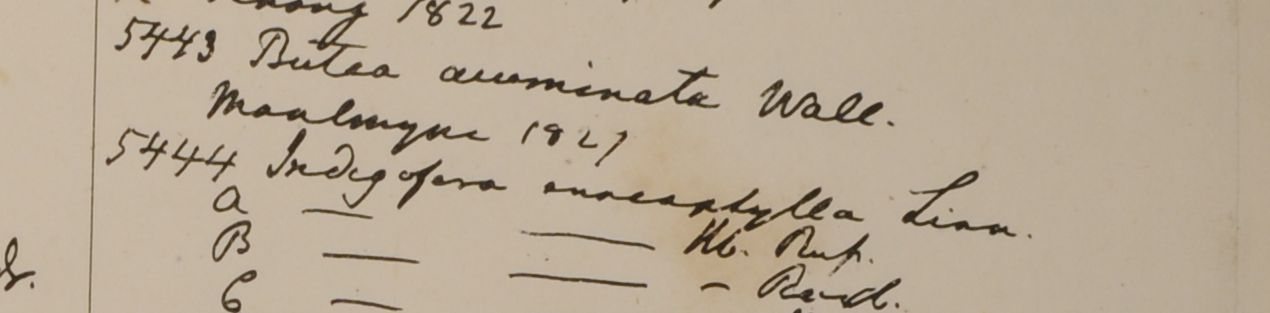 Penang 1822
5443 Butea acuminata Wall.
Moalmyne 1827
5444 Indigofera enneaphylla Linn.
a —
B — — Hb. Rup.
C — — - Roxb.